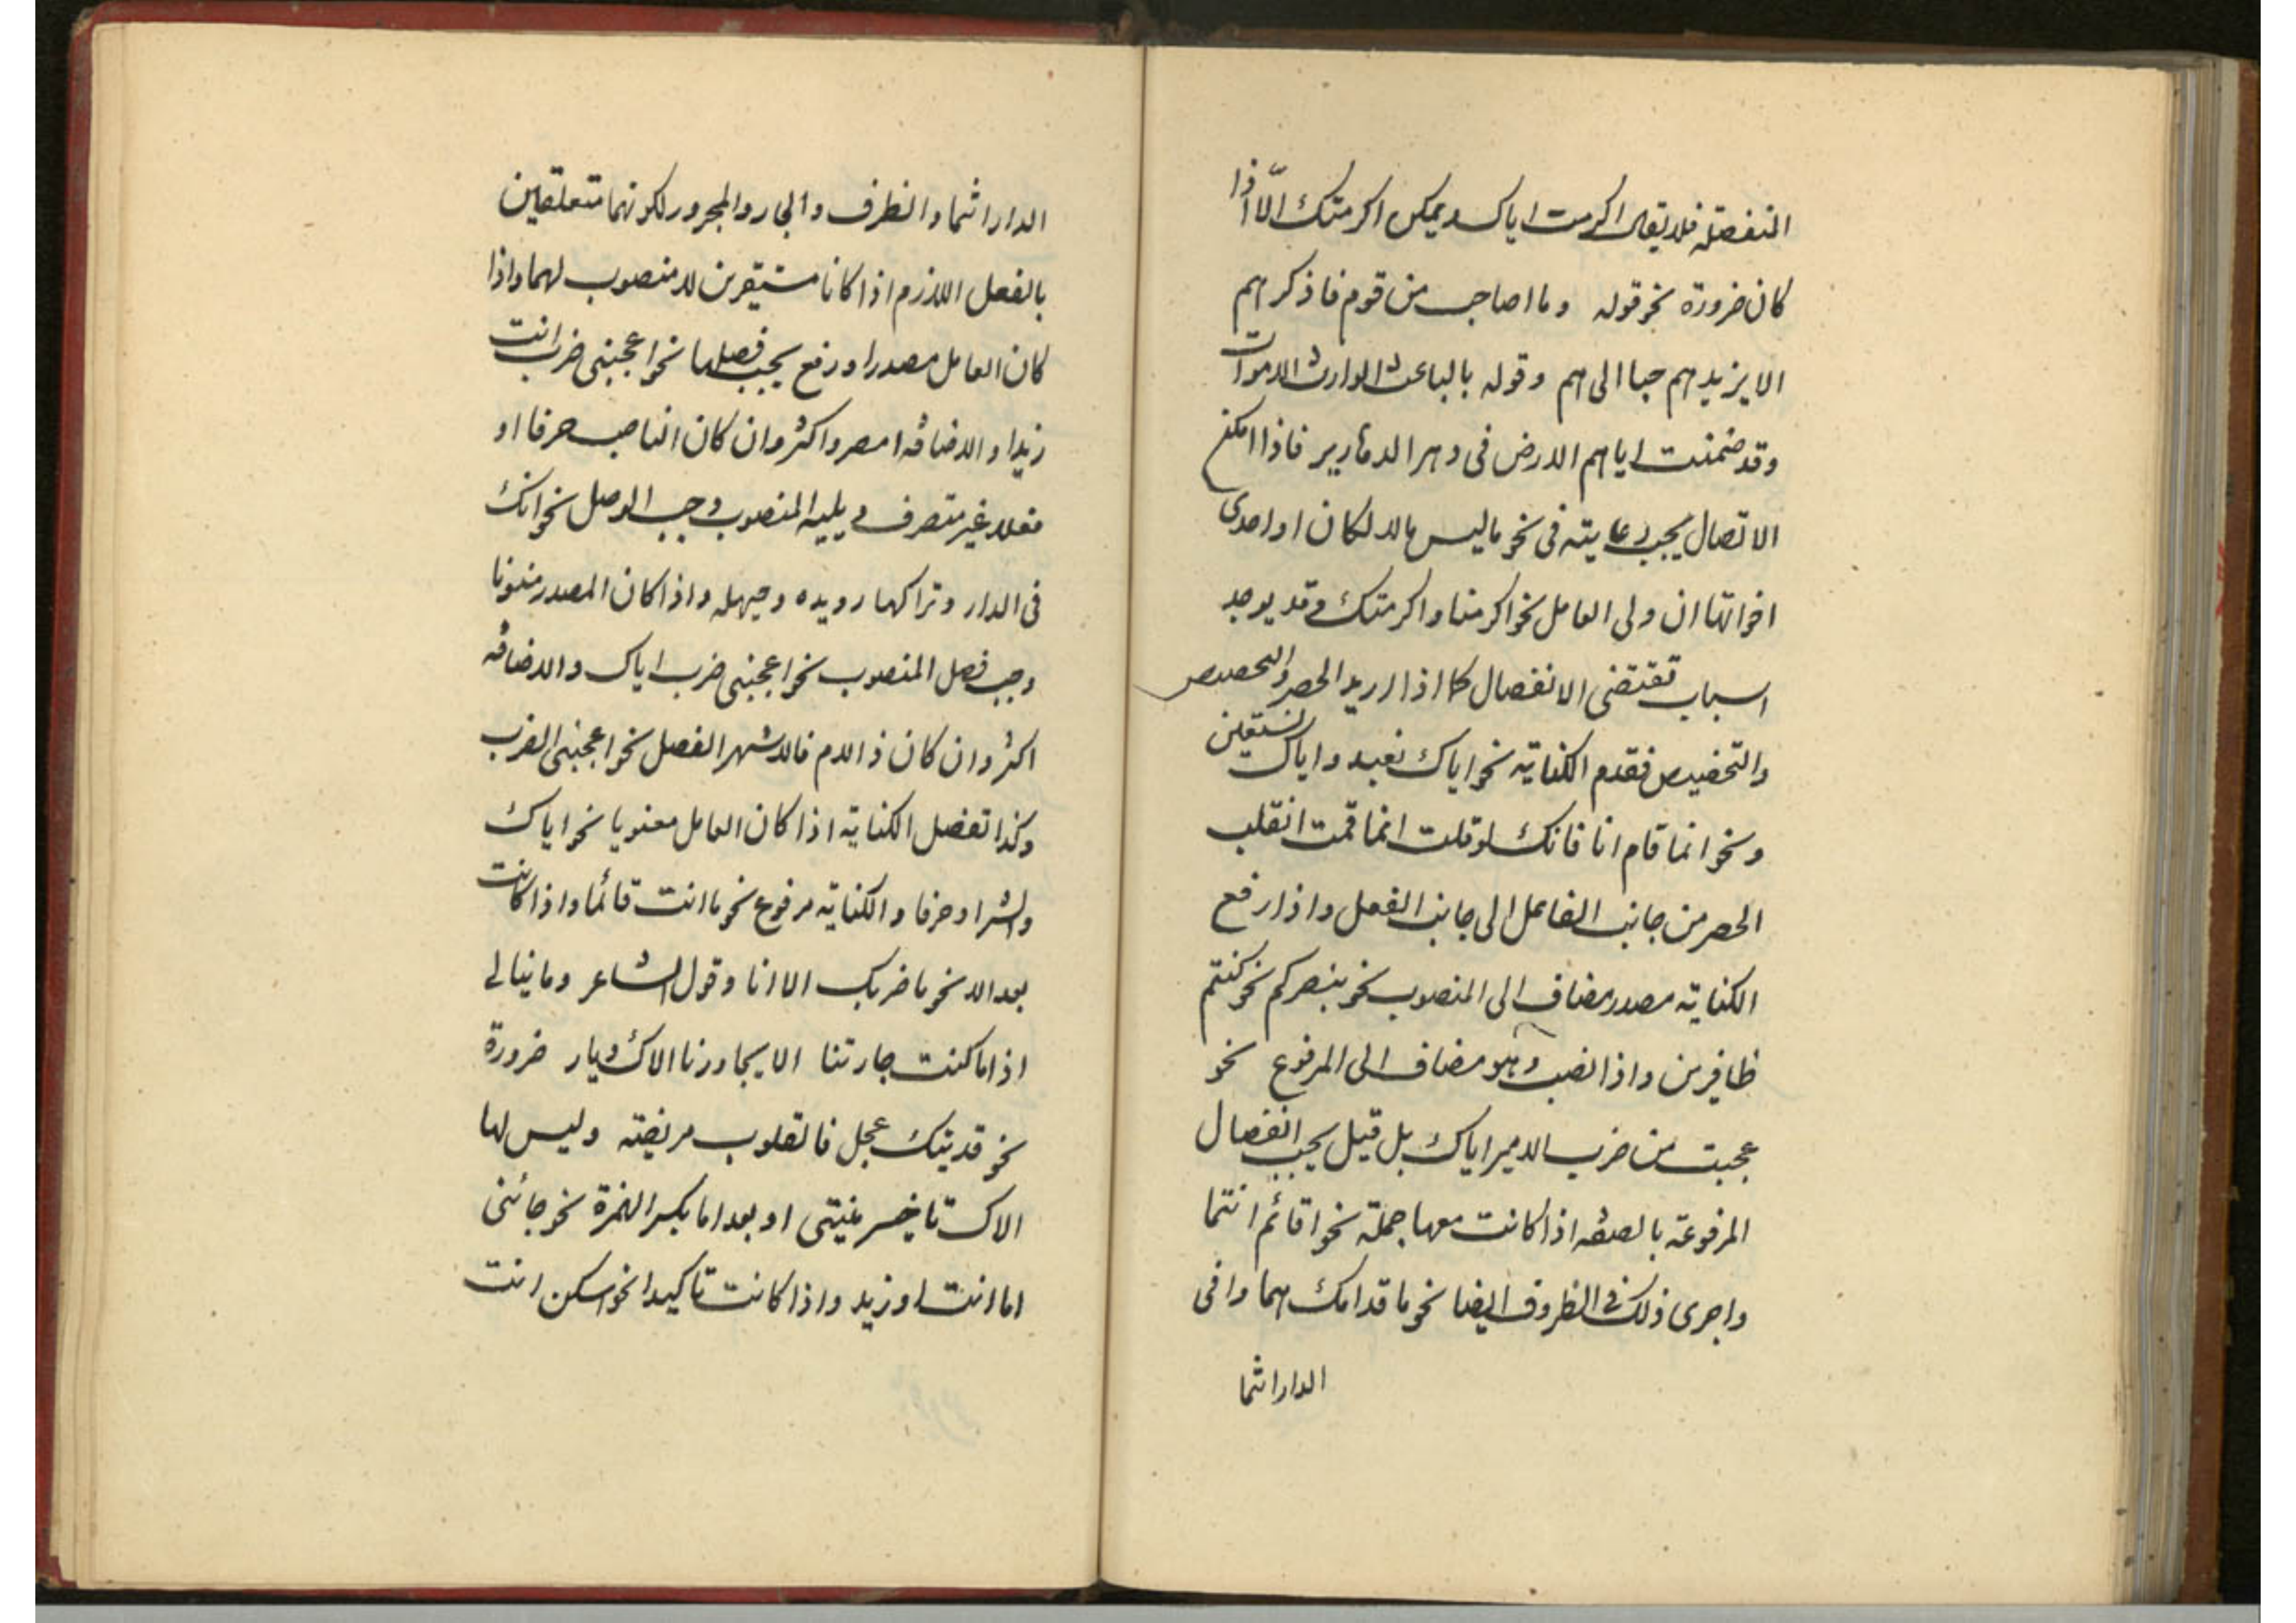 المنفصلة فلا يقال اكرمت اياك ويمكن اكرمتك الّا اذا
كان ضرورة نحو قوله وما اصاحب من قوم فاذكرهم
الا يزيدهم حبا الى هم وقوله بالباعث الوارث الاموات
وقد ضمنت اياهم الارض فى دهر الدهارير فاذا امكن
الاتصال يجب رعايته فى نحو ما ليس بالا لكان او احدى
اخواتها ان ولى العامل نحو اكرمنا واكرمتك وقد يوجد
اسباب تقتضى الانفصال كما اذا اريد الحصر والتحصيص
والتخصيص فقدم الكناية نحو اياك نعبد واياك نستعين
ونحو انما قام انا فانك لو قلت انما قمت انقلب
الحصر من جانب الفاعل الى جانب الفعل واذا رفع
الكناية مصدر مضاف الى المنصوب نحو بنصركم نحو كنتم
ظافرين واذا نصب وهو مضاف الى المرفوع نحو
عجبت من ضرب الامير اياك بل قيل يجب انفصال
المرفوعة بالصفه اذا كانت معها جملة نحو اقائم انتما
واجرى ذلك فى الظروف ايضا نحو ما قدامك هما وافى
الدار انتما
الدار انتما والظرف والجار والمجرور لكونهما متعلقين
بالفعل اللازم اذا كانا مستقرين لا منصوب لهما واذا
كان العامل مصدرا ورفع يجب فصلها نحو اعجبنى ضرب انت
زيدا والاضافه احصر واكثر وان كان الناصب حرفا او
فعلا غير متصرف ويليه المنصوب وجب الوصل نحو انك
فى الدار وتراكها رويده وحيهله واذا كان المصدر منونا
وجب فصل المنصوب نحو اعجبنى ضرب اياك والاضافه
اكثر وان كان ذا اللام فالاشهر الفصل نحو اعجبنى الضرب
وكذا تفصل الكناية اذا كان العامل معنويا نحو اياك
والشر او حرفا والكناية مرفوع نحو ما انت قائما واذا كانت
بعد الا نحو ما ضربك الا انا وقول الشاعر وما نبالى
اذا ما كنت جارتنا الا يجاورنا الاك ديار ضرورة
نحو قديتك عجل فالقلوب مريضة وليس لها
الاك تاخير منيتى او بعد اما بكسر الهمزة نحو جائنى
اما انت او زيد واذا كانت تاكيدا نحو اسكن انت